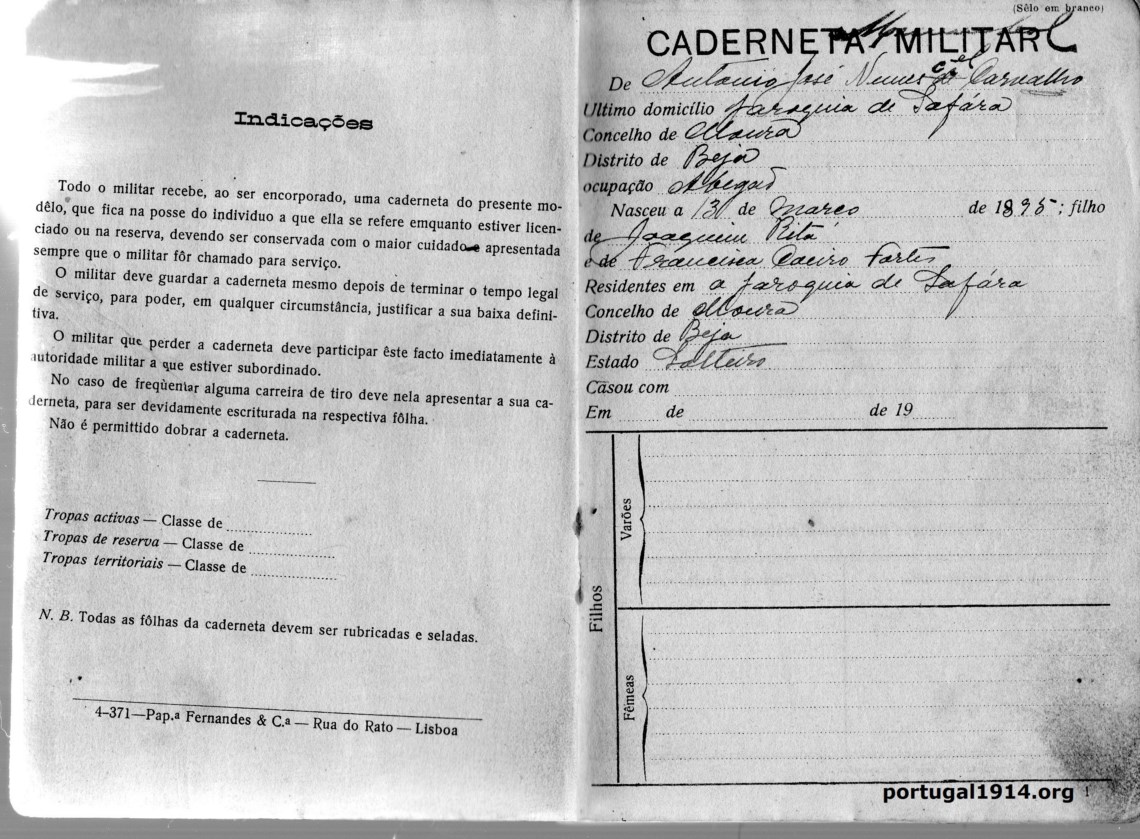 Indicações
Todo o militar recebe, ao ser encorporado, uma caderneta do presente mo-
dêlo, que fica na posse do individuo a que ella se refere emquanto estiver licen-
ciado ou na reserva, devendo ser conservada com o maior cuidado e apresentada
sempre que o militar fôr chamado para serviço.
O militar deve guardar a caderneta mesmo depois de terminar o tempo legal
de serviço, para poder, em qualquer circumstância, justificar a sua baixa defini-
tiva.
O militar que perder a caderneta deve participar êste facto imediatamente à
autoridade militar a que estiver subordinado.
No caso de freqüentar alguma carreira de tiro deve nela apresentar a sua ca-
derneta, para ser devidamente escriturada na respectiva fôlha.
Não é permittido dobrar a caderneta.
Tropas activas — Classe de
Tropas de reserva — Classe de
Tropas territoriais — Classe de
N. B. Todas as fôlhas da caderneta devem ser rubricadas e seladas.
4-371—Pap.ª Fernandes & C.ª — Rua do Rato — Lisboa
(Sêlo em branco)
CADERNETA MILITAR
De António José Nunes Carvalho
Ultimo domicílio Paroquia de Safára
Concelho de Moura
Distrito de Beja
ocupação Abegão
Nasceu a 13 de Março de 1895; filho
de Joaquim Rita
e de Francisca Caeiro Fortes
Residentes em a paroquia de Safára
Concelho de Moura
Distrito de Beja
Estado Solteiro
Casou com
Em de de 19
Filhos
Varões
Fêmeas
portugal1914.org
1